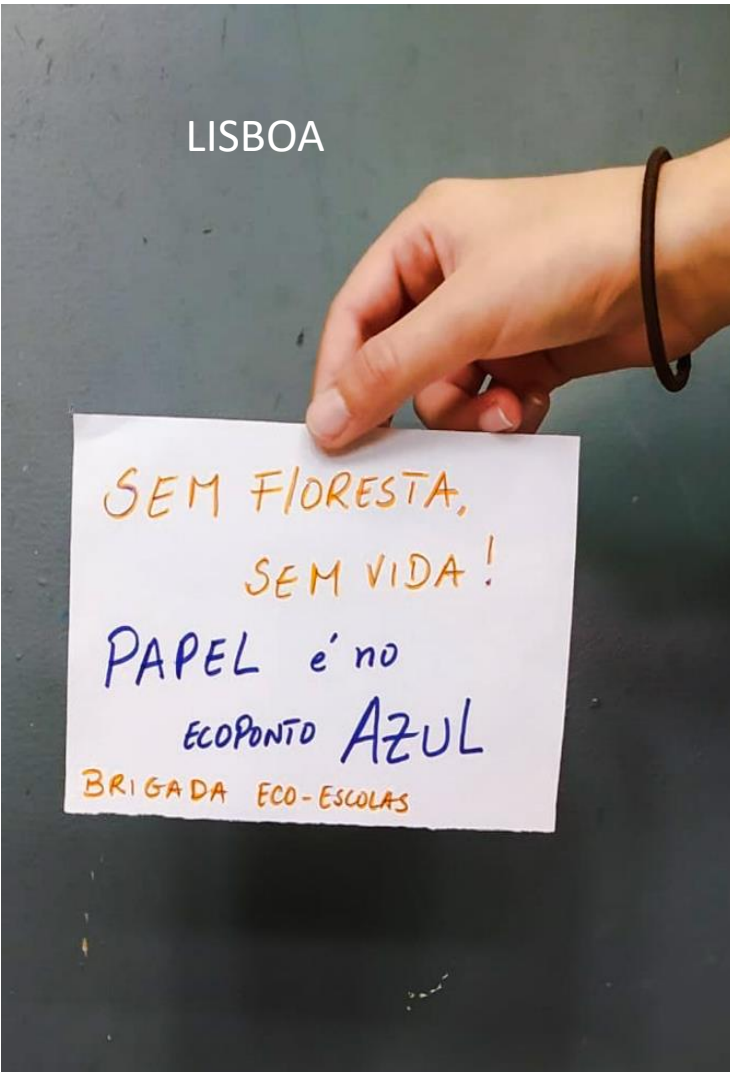 LISBOA
SEM FlORESTA,
SEM VIDA!
PAPEL é no
ECOPONTO AZUL
BRIGADA ECO-ESCOLAS